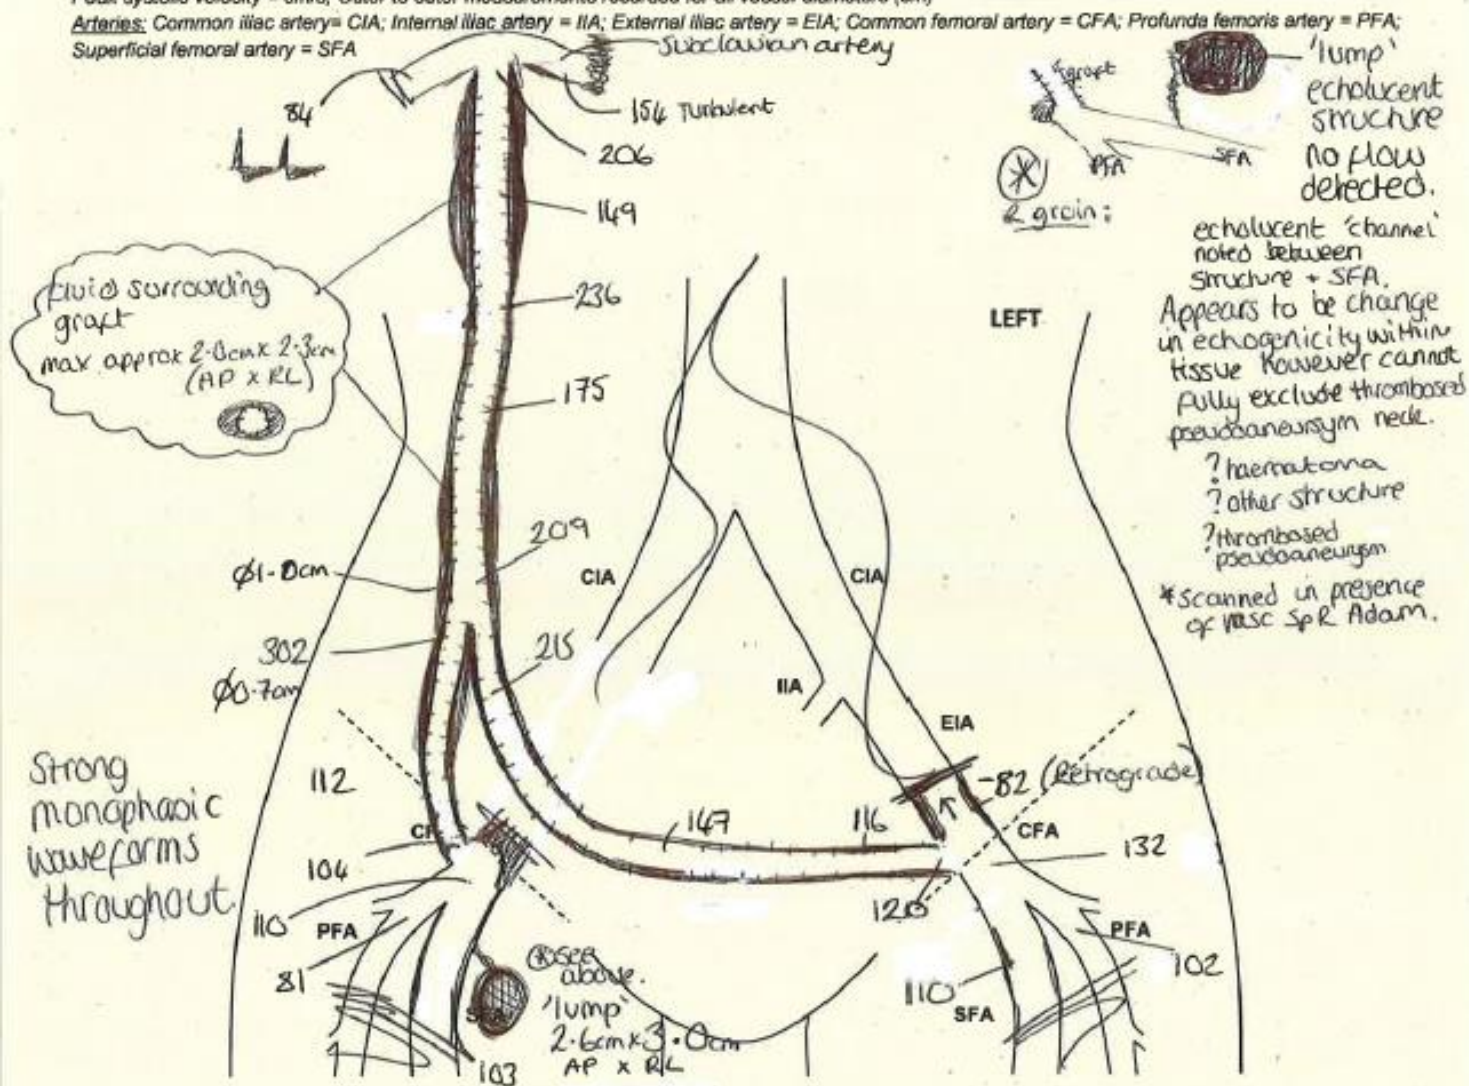 Arteries: Common iliac artery= CIA; Internal iliac artery = IIA; External iliac artery = EIA; Common femoral artery = CFA; Profunda femoris artery = PFA;
Superficial femoral artery = SFA
Subclavian artery
84
154 Turbulent
206
149
236
175
209
215
fluid surrounding
graft
max approx 2.0cm x 2.3cm
(AP x RL)
Ø1.0cm
302
Ø0.7cm
112
Strong
monophasic
waveforms
throughout.
104
110
PFA
81
103
CIA
CIA
IIA
EIA
LEFT
82 (Retrograde)
CFA
147
116
132
120
PFA
102
110
SFA
see
above.
'lump'
2.6cm x 3.0cm
AP x RL
graft
PFA
SFA
R groin:
'lump'
echolucent
structure
no flow
detected.
echolucent 'channel'
noted between
structure + SFA.
Appears to be change
in echogenicity within
tissue however cannot
fully exclude thrombosed
pseudoaneursym neck.
? haematoma
? other structure
? thrombosed
pseudoaneurysm
*scanned in presence
of vasc SpR Adam.